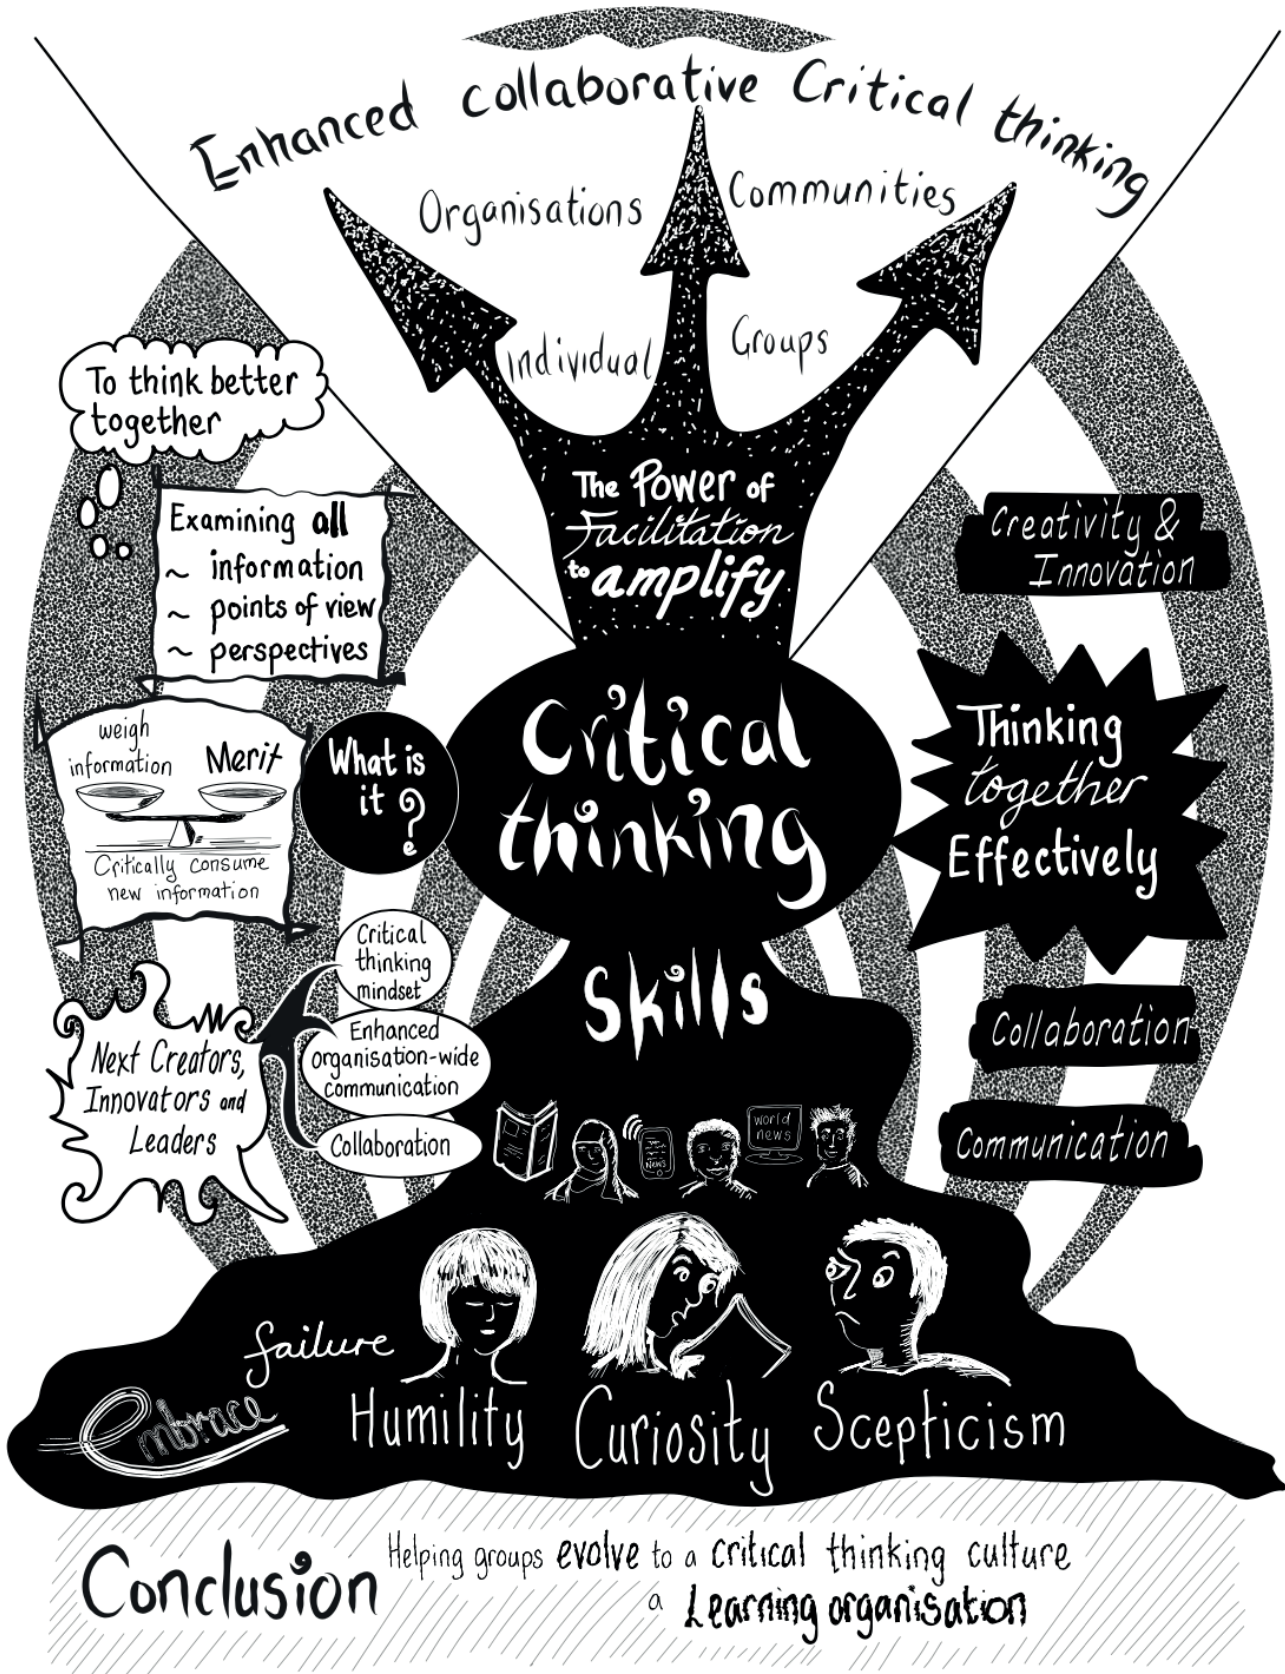 Enhanced collaborative Critical thinking
Organisations
Communities
Individual
Groups
The Power of
Facilitation
to amplify
To think better
together
Examining all
~ information
~ points of view
~ perspectives
weigh
information
Merit
Critically consume
new information
What is
it?
Critical
thinking
Skills
Creativity &
Innovation
Thinking
together
Effectively
Collaboration
Communication
Critical
thinking
mindset
Enhanced
organisation-wide
communication
Collaboration
Next Creators,
Innovators and
Leaders
News
world
news
Embrace
failure
Humility
Curiosity
Scepticism
Conclusion
Helping groups evolve to a critical thinking culture
a Learning organisation